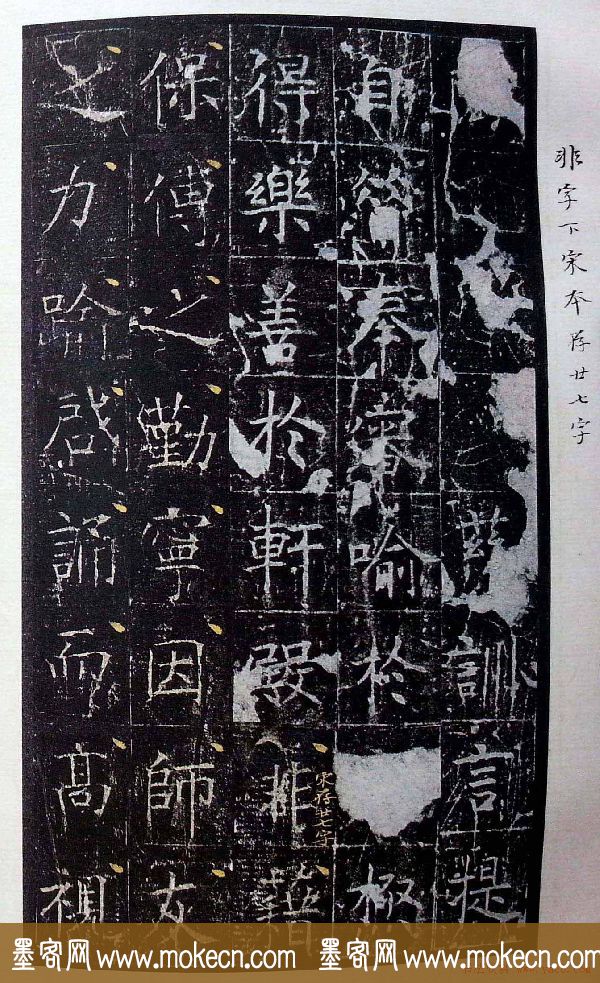 非字下宋本存廿七字
訓言提
自奉睿喻於極
得樂善於軒非藉
宋存廿七字
保傅之勤寧因師友
之力踰啓誦而高視
墨客网 www.mokecn.com 墨客网 www.mokecn.com